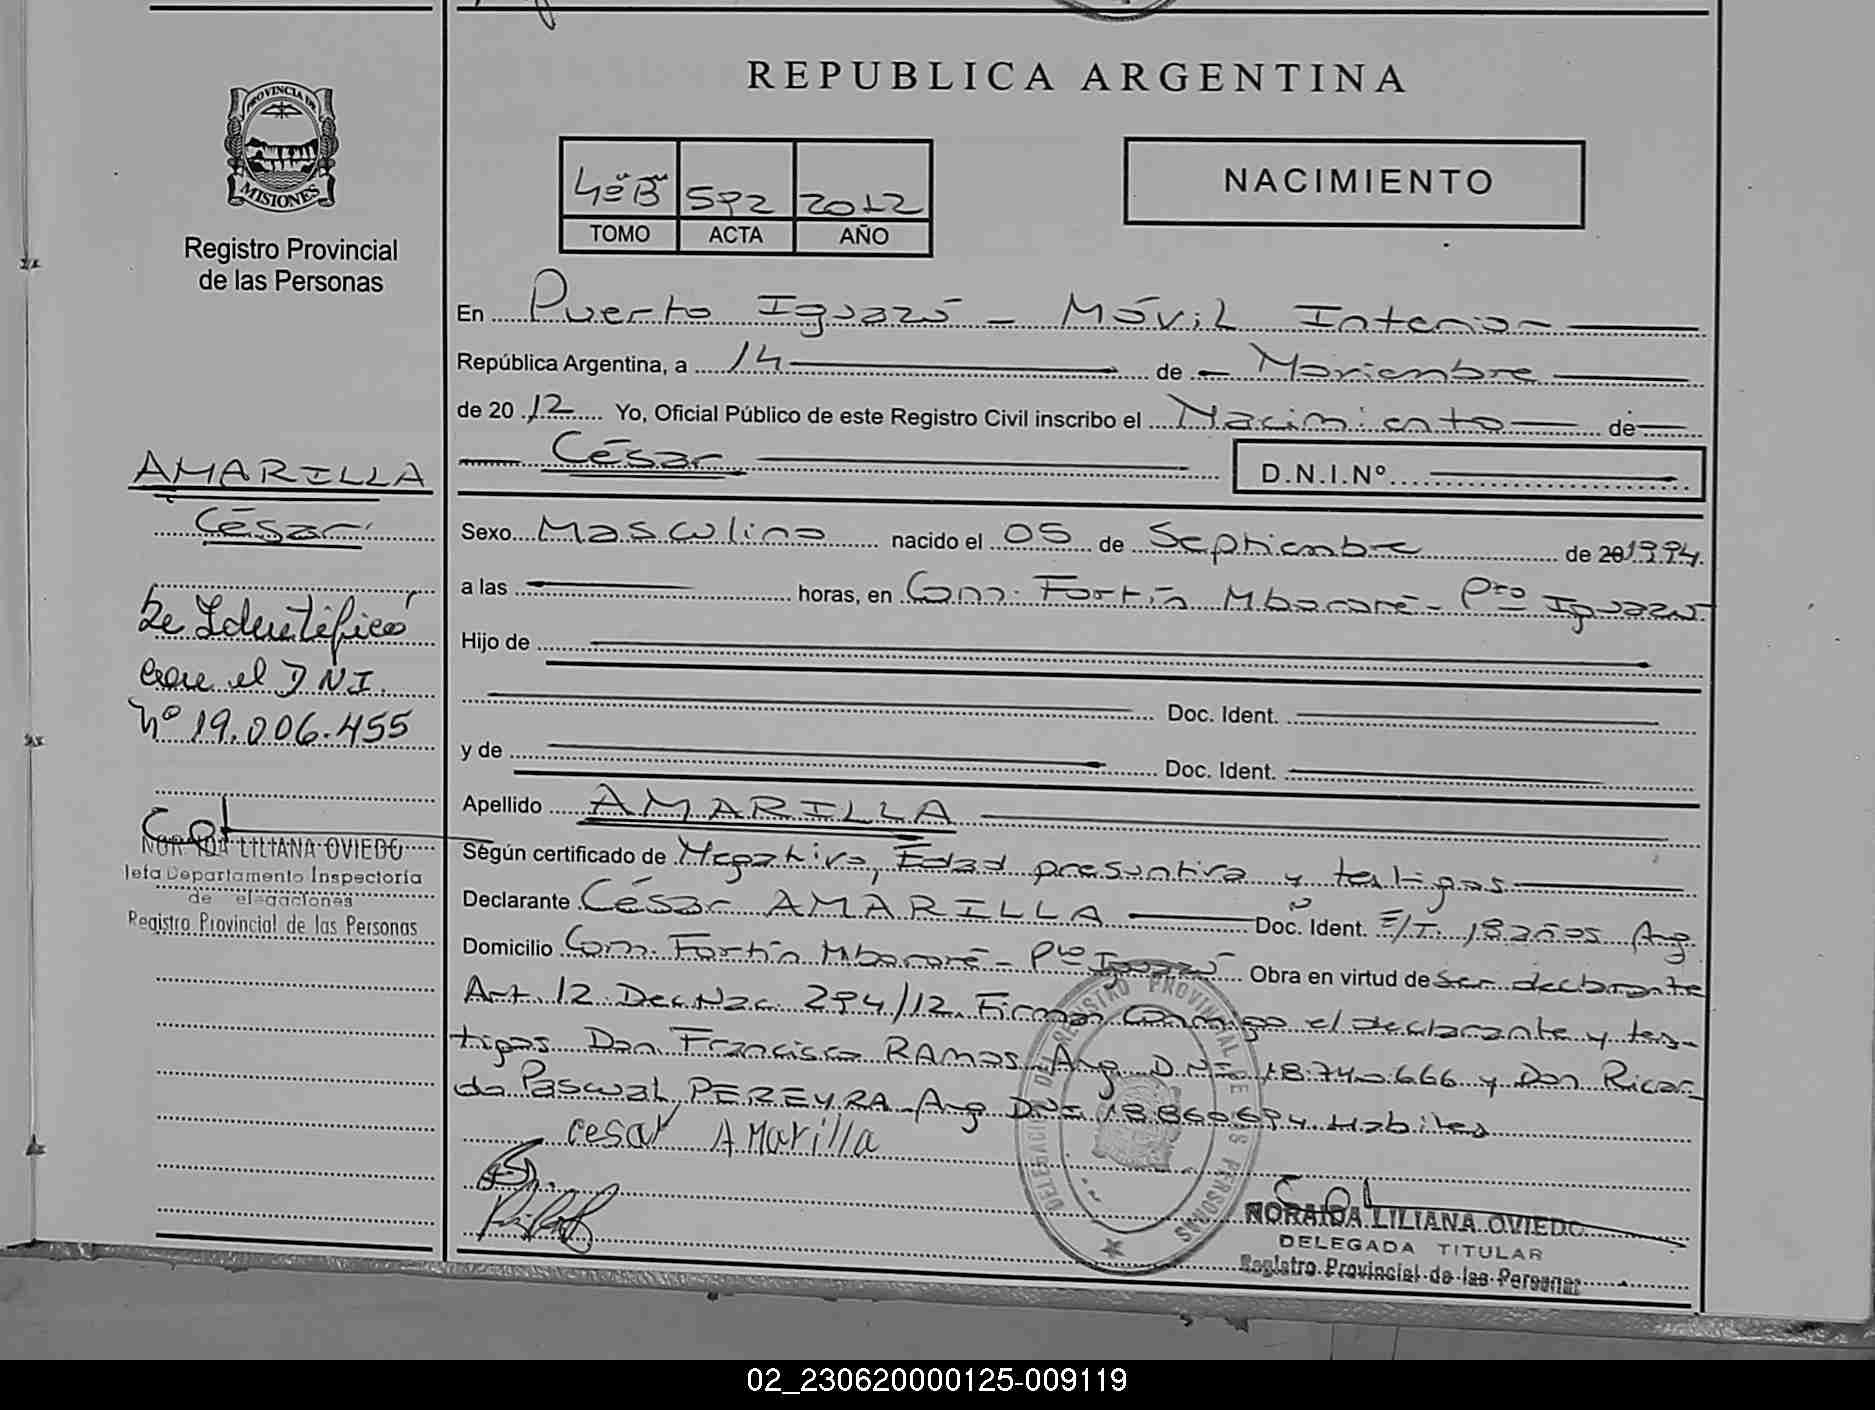 REPUBLICA ARGENTINA
PROVINCIA DE
MISIONES
Registro Provincial
de las Personas
4º "B" 592 2012
TOMO ACTA AÑO
NACIMIENTO
En Puerto Iguazú - Móvil Interior
República Argentina, a 14 de Noviembre
de 2012 Yo, Oficial Público de este Registro Civil inscribo el Nacimiento de
César
D.N.I.Nº
AMARILLA
César
Se Identificó
con el DNI.
Nº 19.006.455
NORAIDA LILIANA OVIEDO
Jefa Departamento Inspectoría
de elegaciones
Registro Provincial de las Personas
Sexo Masculino nacido el 05 de Septiembre de 20 1994.
a las horas, en Com. Fortín Mbororé - Pto Iguazú
Hijo de
Doc. Ident.
y de Doc. Ident.
Apellido AMARILLA
Según certificado de Negativo, Edad presuntiva y testigos
Declarante César AMARILLA Doc. Ident. E/T. 18 años Arg.
Domicilio Com. Fortín Mbororé - Pto Iguazú Obra en virtud de ser declarante
Art. 12 Dec. Nac. 294/12. Firman Conmigo el declarante y tes-
tigos Don Francisco RAMOS Arg DNI 18.740.666 y Don Ricar-
do Pascual PEREYRA Arg DNI 18.860.694 Habiles
cesar AMarilla
DELEGACION DEL REGISTRO PROVINCIAL DE LAS PERSONAS
NORAIDA LILIANA OVIEDO
DELEGADA TITULAR
Registro Provincial de las Personas
02_230620000125-009119